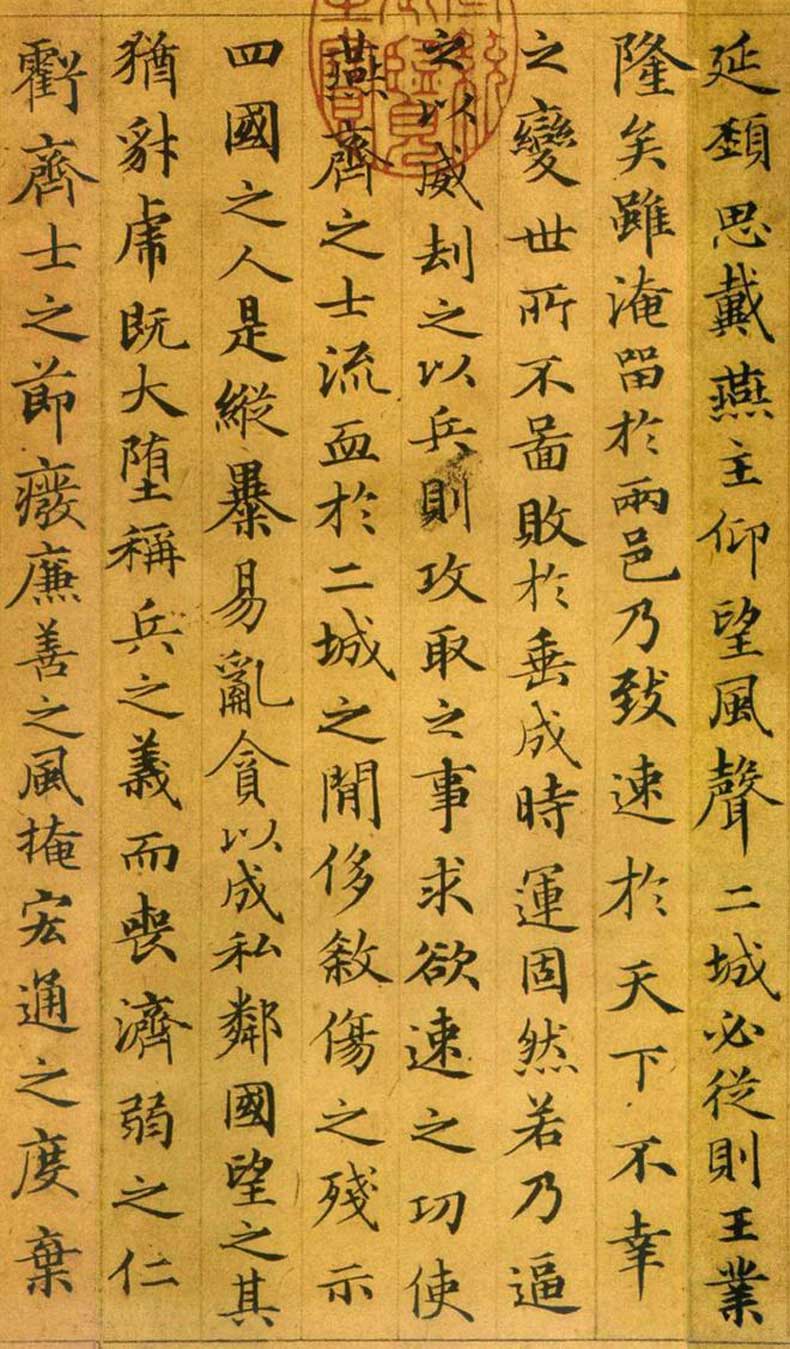 延頚思戴燕主仰望風聲二城必從則王業
隆矣雖淹留於兩邑乃致速於天下不幸
之變世所不啚敗於垂成時運固然若乃逼
之以威刼之以兵則攻取之事求欲速之功使
燕齊之士流血於二城之閒侈敘傷之殘示
四國之人是縱暴易亂貪以成私鄰國望之其
猶豺虎既大堕稱兵之義而喪濟弱之仁
虧齊士之節癈廉善之風掩宏通之度棄